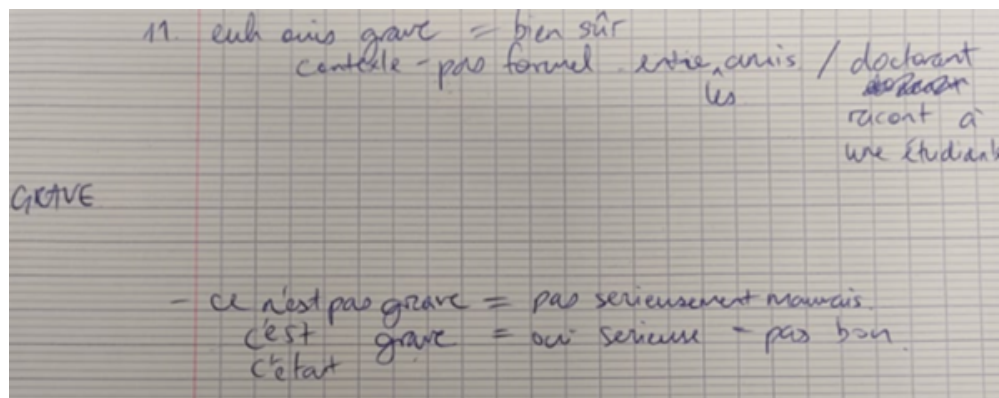 11. euh ouis grave = bien sûr
contexte - pas formel entre les amis / doctorant
racont à
une étudiant
GRAVE
- ce n'est pas grave = pas serieusement mauvais.
c'est grave = oui serieuse - pas bon.
c'était